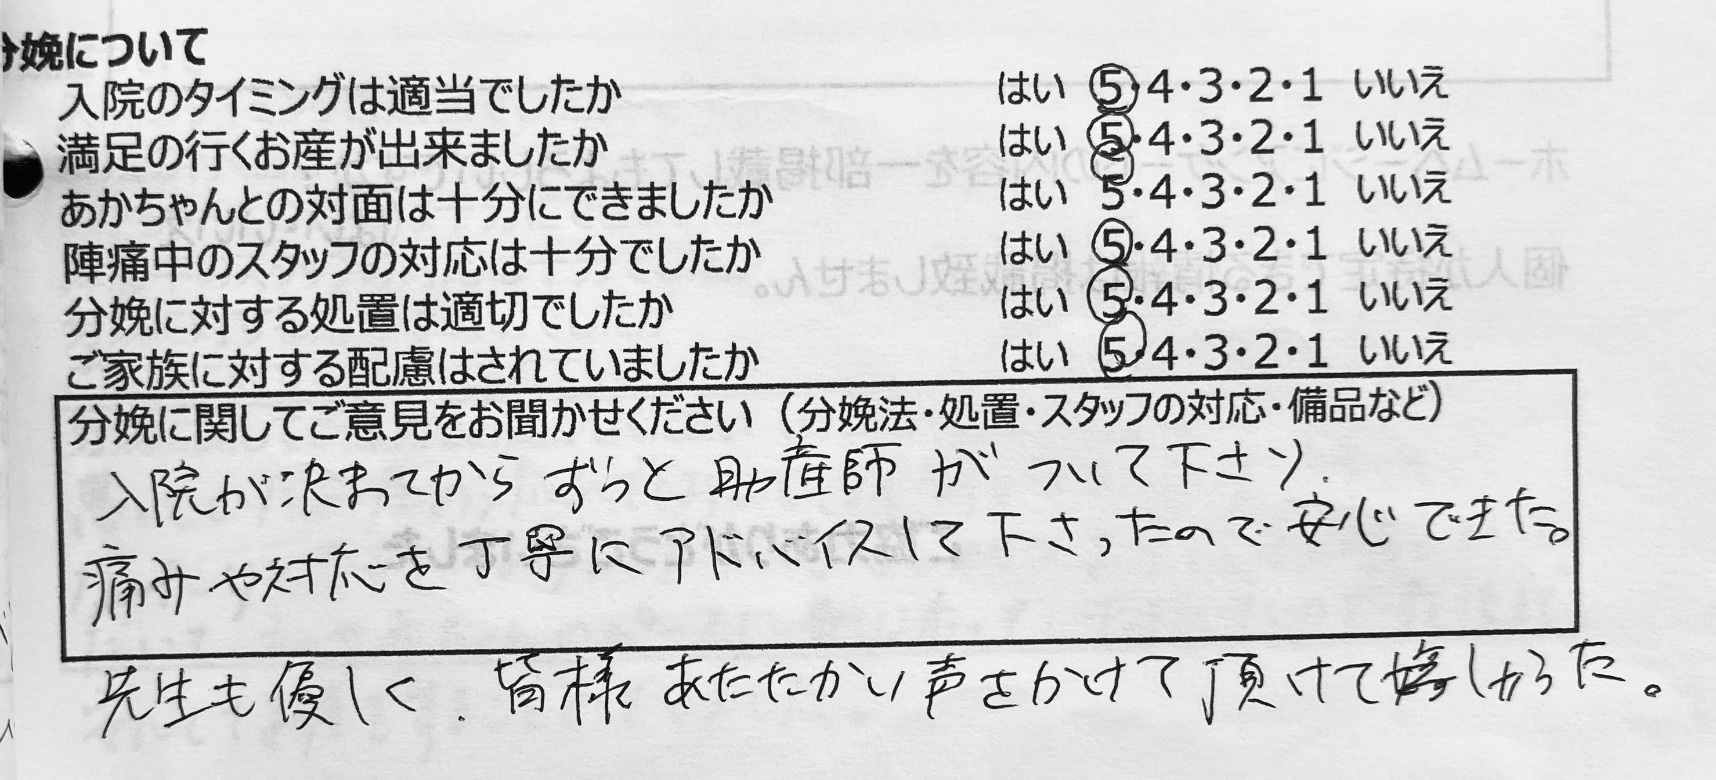 分娩について
入院のタイミングは適当でしたか はい 5・4・3・2・1 いいえ
満足の行くお産が出来ましたか はい 5・4・3・2・1 いいえ
あかちゃんとの対面は十分にできましたか はい 5・4・3・2・1 いいえ
陣痛中のスタッフの対応は十分でしたか はい 5・4・3・2・1 いいえ
分娩に対する処置は適切でしたか はい 5・4・3・2・1 いいえ
ご家族に対する配慮はされていましたか はい 5・4・3・2・1 いいえ
分娩に関してご意見をお聞かせください（分娩法・処置・スタッフの対応・備品など）
入院が決まってからずっと助産師がついて下さり、
痛みや対応を丁寧にアドバイスして下さったので安心できた。
先生も優しく、皆様あたたかい声をかけて頂けて嬉しかった。